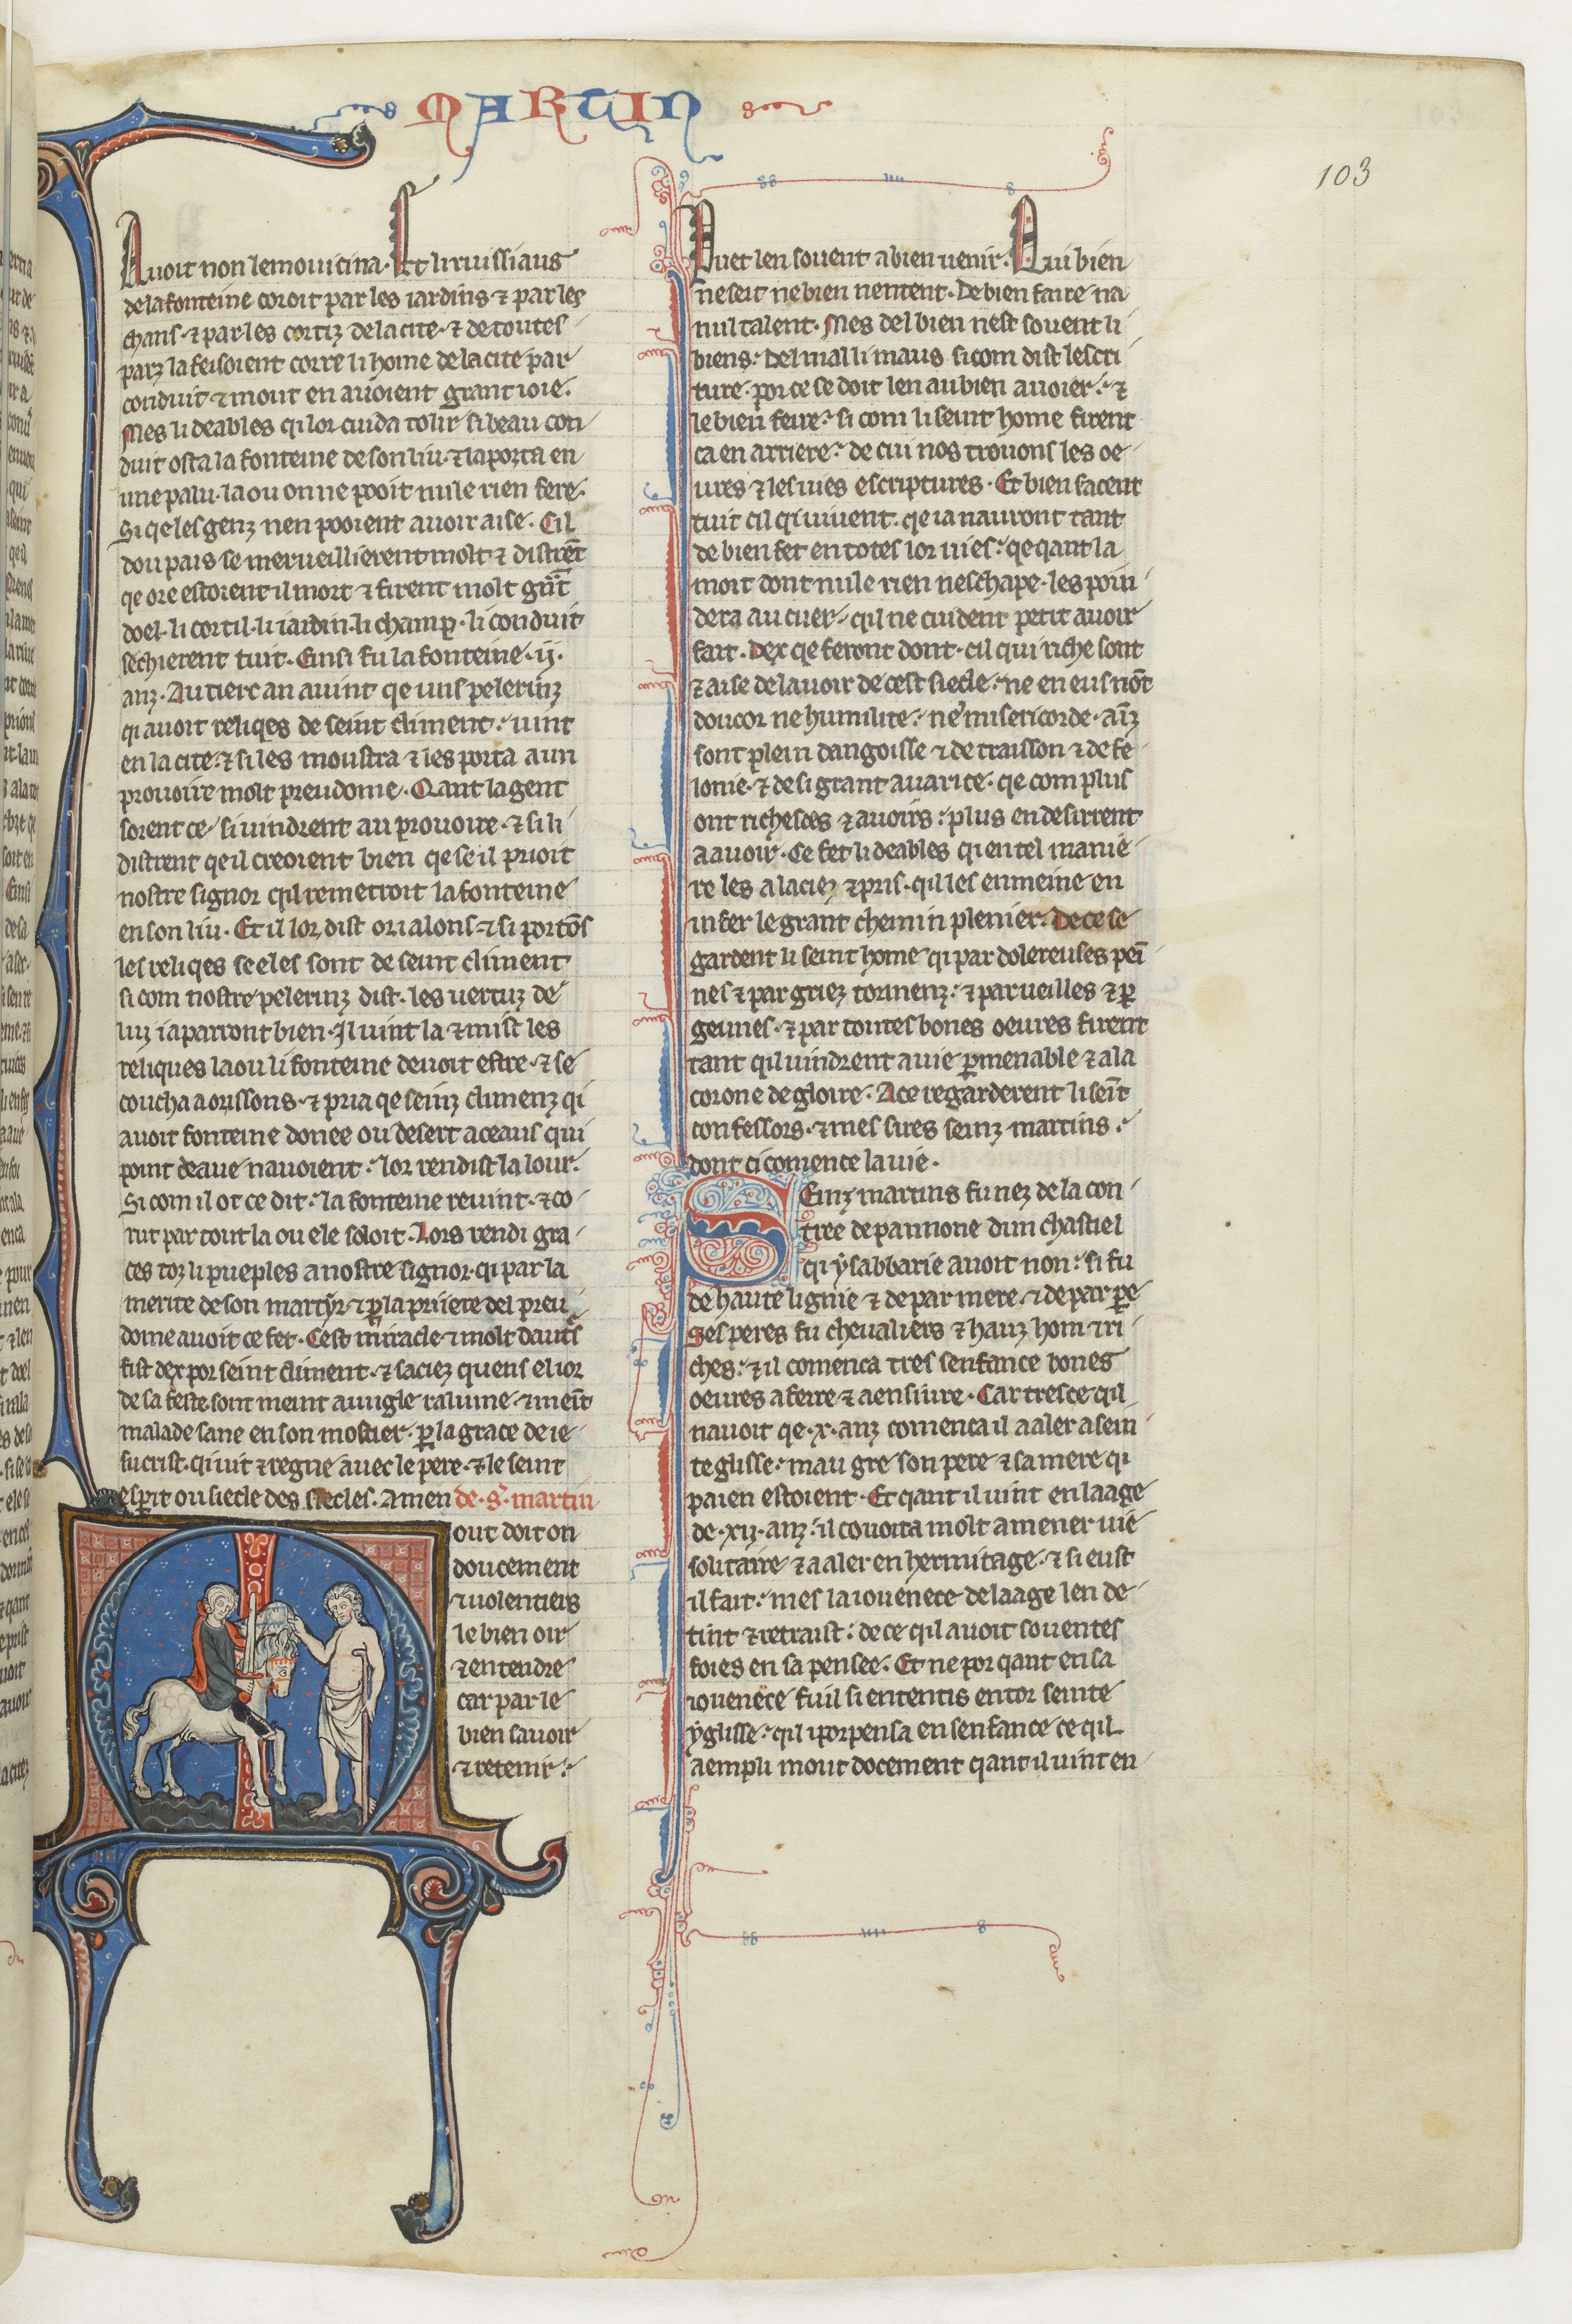 MARTIN
103
Avoit non lemouicina. Et li ruissiaus
de la fonteine coroit par les iardins ⁊ par les
chans. ⁊ par les cortiz de la cite. ⁊ de toutes
parz la feisoient corre li home de la cite par
conduit ⁊ mout en auoient grant ioie.
Mes li deables qi lor cuida tolir si beau con
duit osta la fonteine de son liu. ⁊ la porta en
une palu. la ou on ne pooit nule rien fere.
Si qe les genz nen pooient auoir aise. Cil
dou pais se merueillierent molt ⁊ distrēt
qe ore estoient il mort ⁊ firent molt grāt
doel. li cortil. li iardin. li champ. li conduit
sechierent tuit. Einsi fu la fonteine .ii.
anz. Au tierc an auint qe uns pelerinz
qi auoit reliqes de seint climent. uint
en la cite. ⁊ si les moustra ⁊ les porta a un
prouoire molt preudome. Qant la gent
sorent ce. si uindrent au prouoire. ⁊ si li
distrent qe il creoient bien qe se il prioit
nostre signor qil remetroit la fonteine
en son liu. Et il lor dist or i alons ⁊ si portōs
les reliqes se eles sont de seint climent
si com nostre pelerinz dist. les uertuz de
lui i aparront bien. Il uint la ⁊ mist les
reliques la ou li fonteine deuoit estre. ⁊ se
coucha a orissons. ⁊ pria qe seinz climenz qi
auoit fonteine donee ou desert a ceaus qui
point deaue nauoient. lor rendist la lour.
Si com il ot ce dit. la fonteine reuint. ⁊ co
rut par tout la ou ele soloit. Lors rendi gra
ces toz li pueples a nostre signor. qi par la
merite de son martyr. ⁊ p̲ la priiere del preu
dome auoit ce fet. Cest miracle ⁊ molt dautˢ
fist dex por seint climent. ⁊ saciez quens el ior
de sa feste sont meint auugle ralume. ⁊ meīt
malade sane en son mostier. p̲ la grace de ie
sucrist. qi uit ⁊ regne auec le pere. ⁊ le seint
esp̄rit ou siecle des siecles. Amen de .s. martin
out doit on
doucement
⁊ uolentiers
le bien oir
⁊ entendre
car par le
bien sauoir
⁊ retenir.
Puet len souent a bien uenir. Qui bien
ne seit ne bien nentent. De bien faire na
nul talent. Mes del bien nest souent li
biens. Del mal li maus si com dist lescri
ture. por ce se doit len au bien auoier. ⁊
le bien feire. si com li seint home firent
ca en arriere. de cui nos trouons les oe
ures ⁊ les uies escriptures. Et bien sacent
tuit cil qi uiuent. qe ia nauront tant
de bien fet en totes lor uies. qe qant la
mort dont nule rien neschape. les poin
dera au cuer. qil ne cuident petit auoir
fait. Dex qe feront dont. cil qui riche sont
⁊ aise de lauoir de cest siecle. ne en eus nōt
doucor ne humilite. ne misericorde. aīz
sont plein dangoisse ⁊ de traisson ⁊ de fe
lonie. ⁊ de si grant auarice. qe com plus
ont richesces ⁊ auoirs. plus en desirrent
a auoir. Ce fet li deables qi en tel manie
re les a laciez ⁊ pris. qil les enmeine en
infer le grant chemin plenier. De ce se
gardent li seint home. qi par dolereuses peī
nes ⁊ par griez tormenz. ⁊ par ueilles ⁊ p̲
geunes. ⁊ par toutes bones oeures firent
tant qil uindrent a uie p̲menable ⁊ a la
corone de gloire. A ce regarderent li seīt
confessors. ⁊ mes sires seinz martins.
dont ci comence la uie.
Seinz martins fu nez de la con
tree de pannone dun chastiel
qi ysabbarie auoit non. si fu
de haute lignie ⁊ de par mere. ⁊ de par pe̲
Ses peres fu cheualiers ⁊ hauz hom ⁊ ri
ches. ⁊ il comenca tres senfance bones
oeures a feire ⁊ a ensiure. Car tresce qil
nauoit qe .x. anz comenca il a aler a sein
te glisse. mau gre son pere ⁊ sa mere qi
paien estoient. Et qant il uint en laage
de .xii. anz. il couoita molt a mener uie
solitaire ⁊ a aler en hermitage. ⁊ si eust
il fait. mes la iouenece de laage len de
tint ⁊ retraist. de ce qil auoit souentes
foies en sa pensee. Et ne por qant en sa
iouenece fu il si ententis entor seinte
yglisse. qil i porpensa en senfance ce qil
aempli mout docement qant il uint en